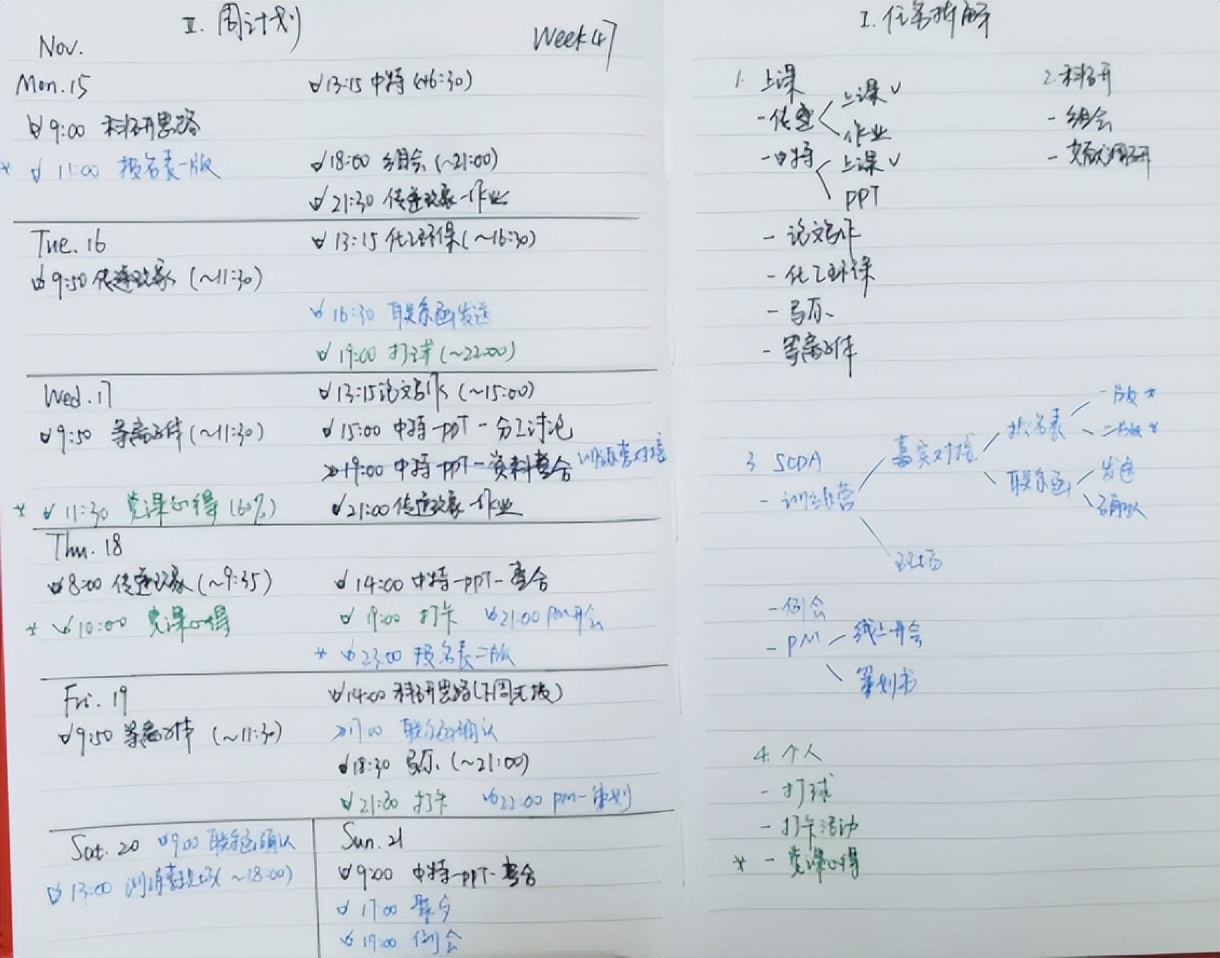 II. 周计划
Nov. Week 47
Mon. 15 13:15 中特 (~16:30)
9:00 科研思路
* 11:00 报名表一版 18:00 组会 (~21:00)
21:30 传递现象-作业
Tue. 16 13:15 化工环保 (~16:30)
9:50 传递现象 (~11:30)
16:30 联系函发送
19:00 打球 (~22:00)
Wed. 17 13:15 论文写作 (~15:00)
9:50 等离子体 (~11:30) 15:00 中特-PPT-分工讨论
>19:00 中特-PPT-资料整合 训练营对接
* 11:30 党课心得 (60%) 21:00 传递现象-作业
Thu. 18
8:00 传递现象 (~9:35) 14:00 中特-PPT-整合
* 10:00 党课心得 19:00 打卡 21:00 PM开会
* 23:00 报名表二版
Fri. 19 14:00 科研思路 (下周汇报)
9:50 等离子体 (~11:30) >17:00 联系函确认
18:30 马原 (~21:00)
21:30 打卡 22:00 pm-策划
Sat. 20 9:00 联系函确认 Sun. 21
13:00 训练营现场 (~18:00) 9:00 中特-PPT-整合
17:00 聚
19:00 例会
I. 任务拆解
1. 上课 2. 科研
- 传递 上课 ✓ 作业 - 组会
- 中特 上课 ✓ PPT - 文献调研
- 论文写作
- 化工环保
- 马原
- 等离子体
3. SCDA
- 训练营 嘉实对接 报名表 一版 * 二版 *
联系函 发送 确认
现场
- 例会
- PM 线上开会
策划书
4. 个人
- 打球
- 打卡活动
* - 党课心得